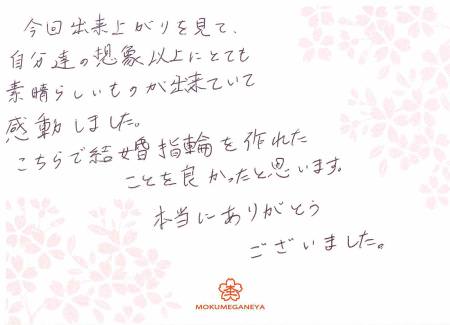 今回出来上がりを見て、
自分達の想象以上にとても
素晴らしいものが出来ていて
感動しました。
こちらで結婚指輪を作れた
ことを良かったと思います。
本当にありがとう
ございました。
MOKUMEGANEYA